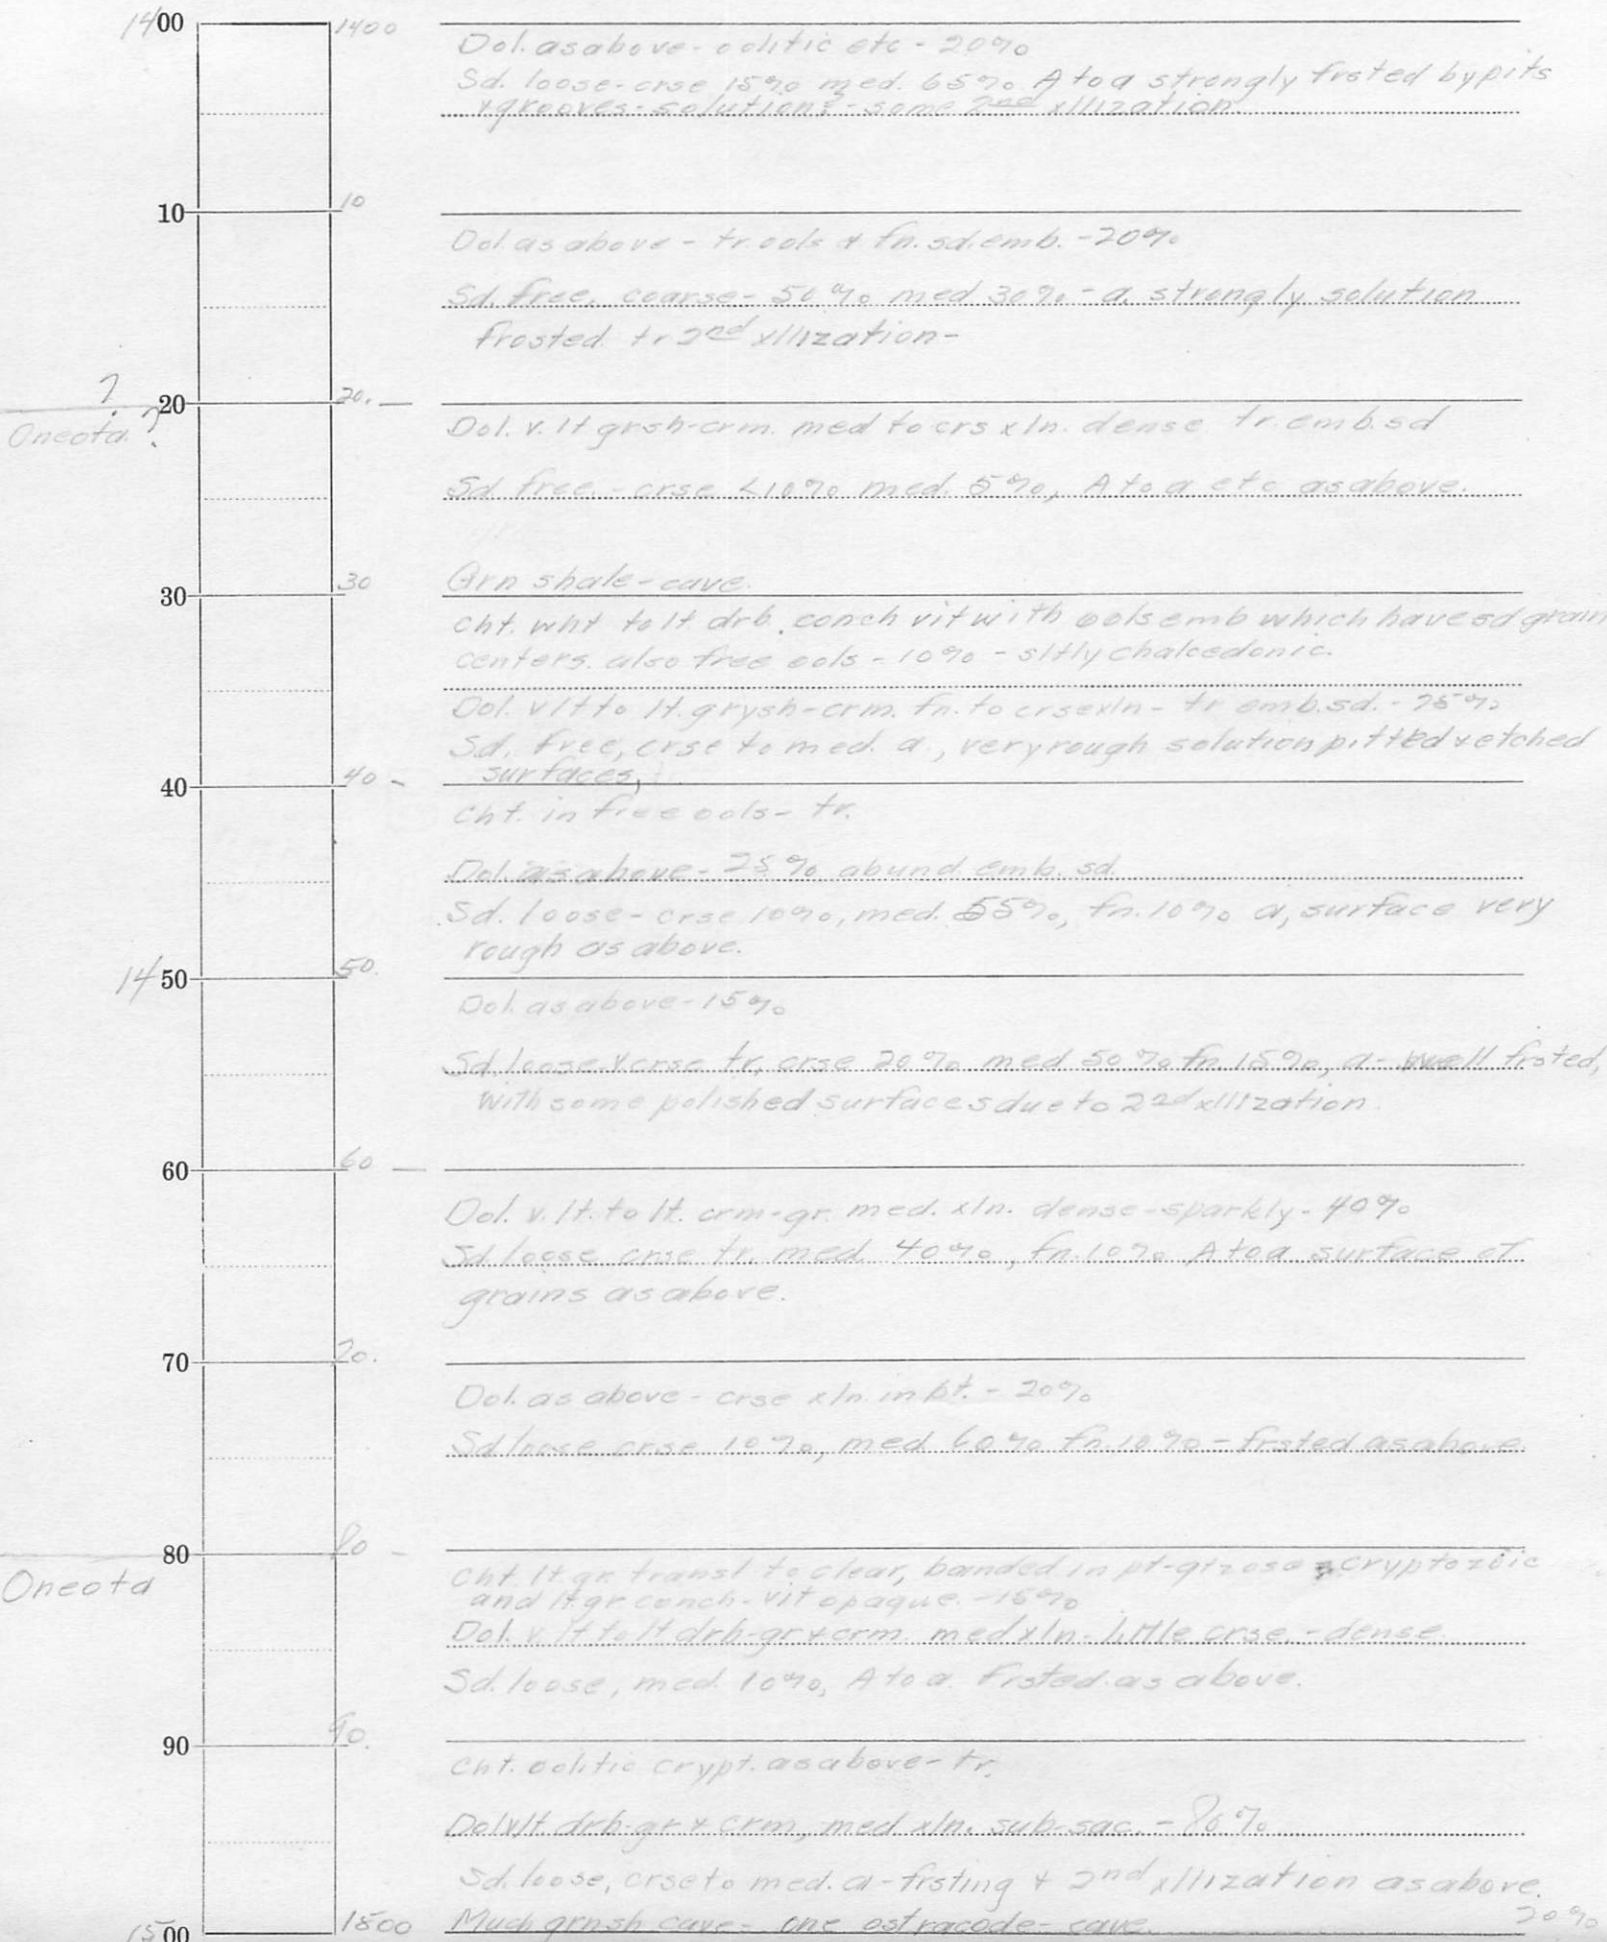 1400 1400
Dol. as above - oolitic etc - 20%
Sd. loose - crse 15% med. 65% A to a strongly frsted by pits
& grooves - solution? - some 2nd xllization.
10 10
Dol. as above - tr. ools & fn. sd. emb. - 20%
Sd. free, coarse - 50% med 30% - a, strongly solution
frosted. tr 2nd xllization -
?
20 20.
Oneota ?
Dol. v. lt grsh-crm. med to crs xln. dense tr. emb. sd
Sd free. - crse <10% med. 5%, A to a etc as above.
Grn shale - cave.
30 30
Cht. wht to lt. drb. conch vit with ools emb which have sd grain
centers. also free ools - 10% - sltly chalcedonic.
Dol. v lt to lt. grysh-crm. fn. to crse xln - tr emb. sd. - 75%
Sd. free, crse to med. a, very rough solution pitted & etched
surfaces,
40 40
Cht. in free ools - tr.
Dol. as above - 25% abund emb. sd.
Sd. loose - crse 10%, med. 55%, fn. 10% a, surface very
rough as above.
1450 50.
Dol. as above - 15%
Sd. loose v crse tr, crse 20% med 50% fn. 15%, a - well frsted,
with some polished surfaces due to 2nd xllization.
60 60
Dol. v. lt. to lt. crm-gr. med. xln. dense - sparkly - 40%
Sd loose crse tr. med 40%, fn. 10% A to a surface of
grains as above.
70 70.
Dol. as above - crse xln. in pt. - 20%
Sd loose crse 10%, med 60% fn. 10% - frsted as above.
80 80
Oneota
Cht. lt. gr. transl to clear, banded in pt-qtzose cryptozoic
and lt gr. conch - vit opaque. - 15%
Dol. v. lt to lt drb-gr & crm. med xln - little crse. - dense
Sd. loose, med. 10%, A to a. frsted as above.
90 90.
Cht. oolitic crypt. as above - tr.
Dol v lt. drb-gr & crm, med xln. sub-sac. - 80%
Sd. loose, crse to med. a - frsting & 2nd xllization as above.
20%
Much grnsh cave - one ostracode - cave.
1500 1500